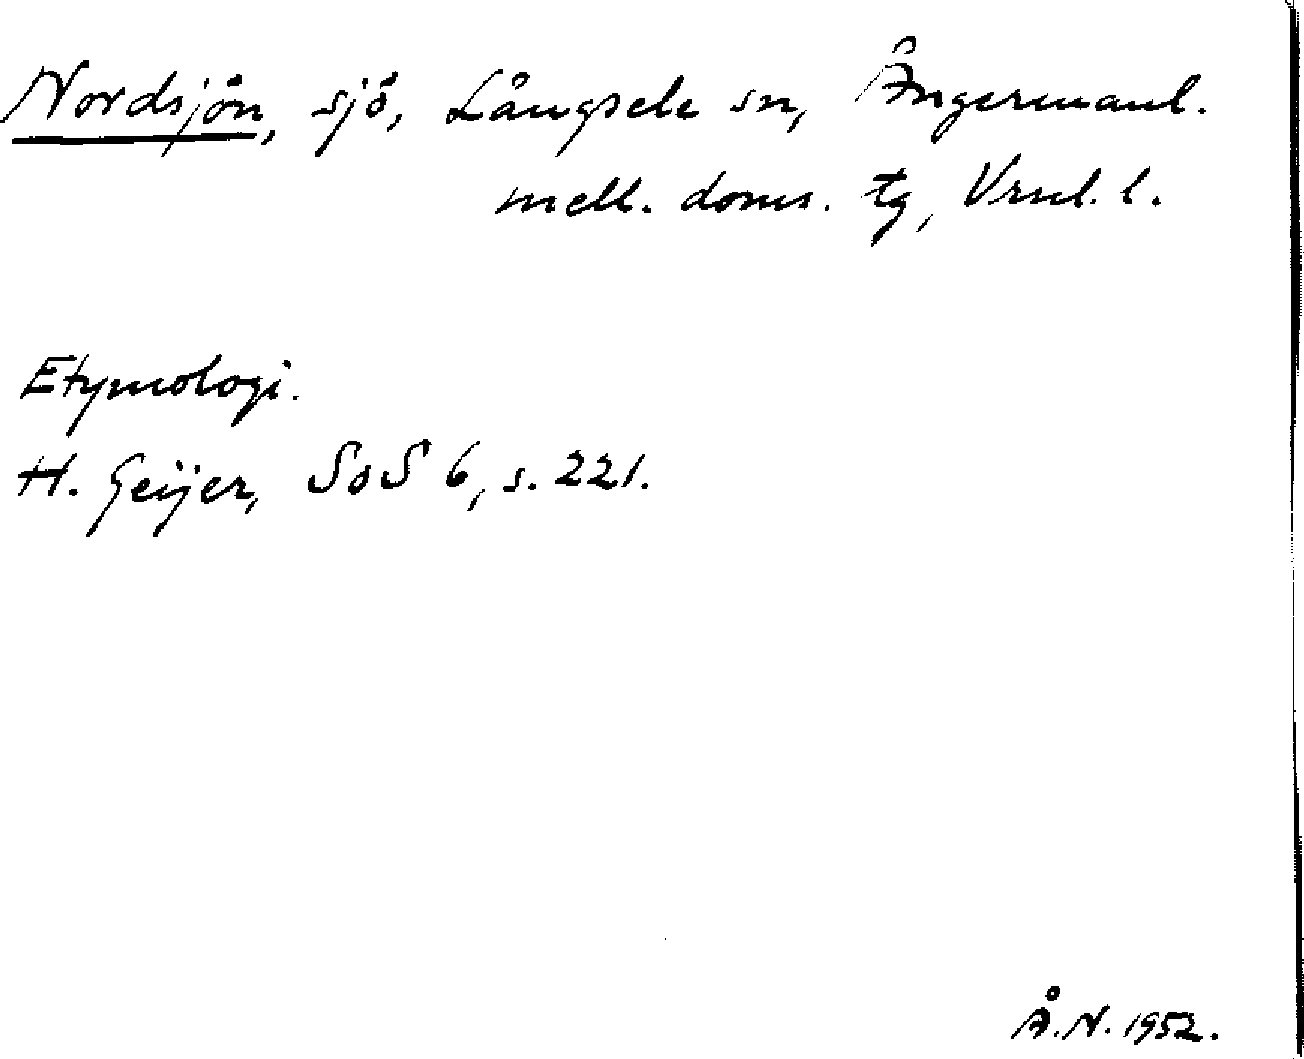 Nordsjön, sjö, Långsele sn, Ångermanl.
mell. doms. tg, Vrnl. l.
Etymologi.
H. Geijer, SoS 6, s. 221.
Å.N. 1952.